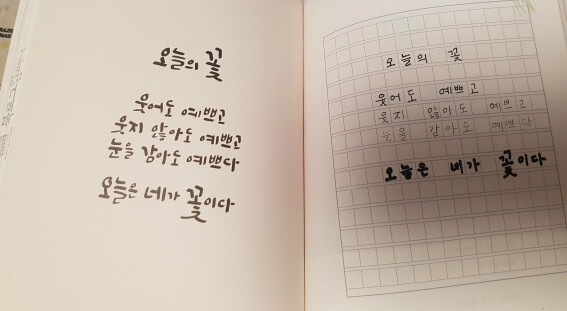 오늘의 꽃
웃어도 예쁘고
웃지 않아도 예쁘고
눈을 감아도 예쁘다
오늘은 네가 꽃이다
오늘의 꽃
웃어도 예쁘고
웃지 않아도 예쁘고
눈을 감아도 예쁘다
오늘은 네가 꽃이다